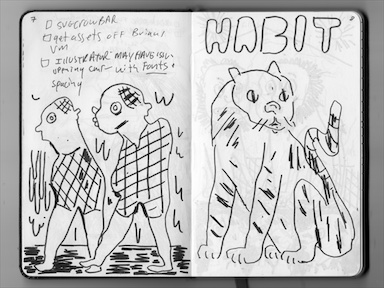 7
□ SVGCROWBAR
□ get assets off Brian's
VM
□ ILLUSTRATOR MAY HAVE
with Fonts +
spacing
HABIT
8